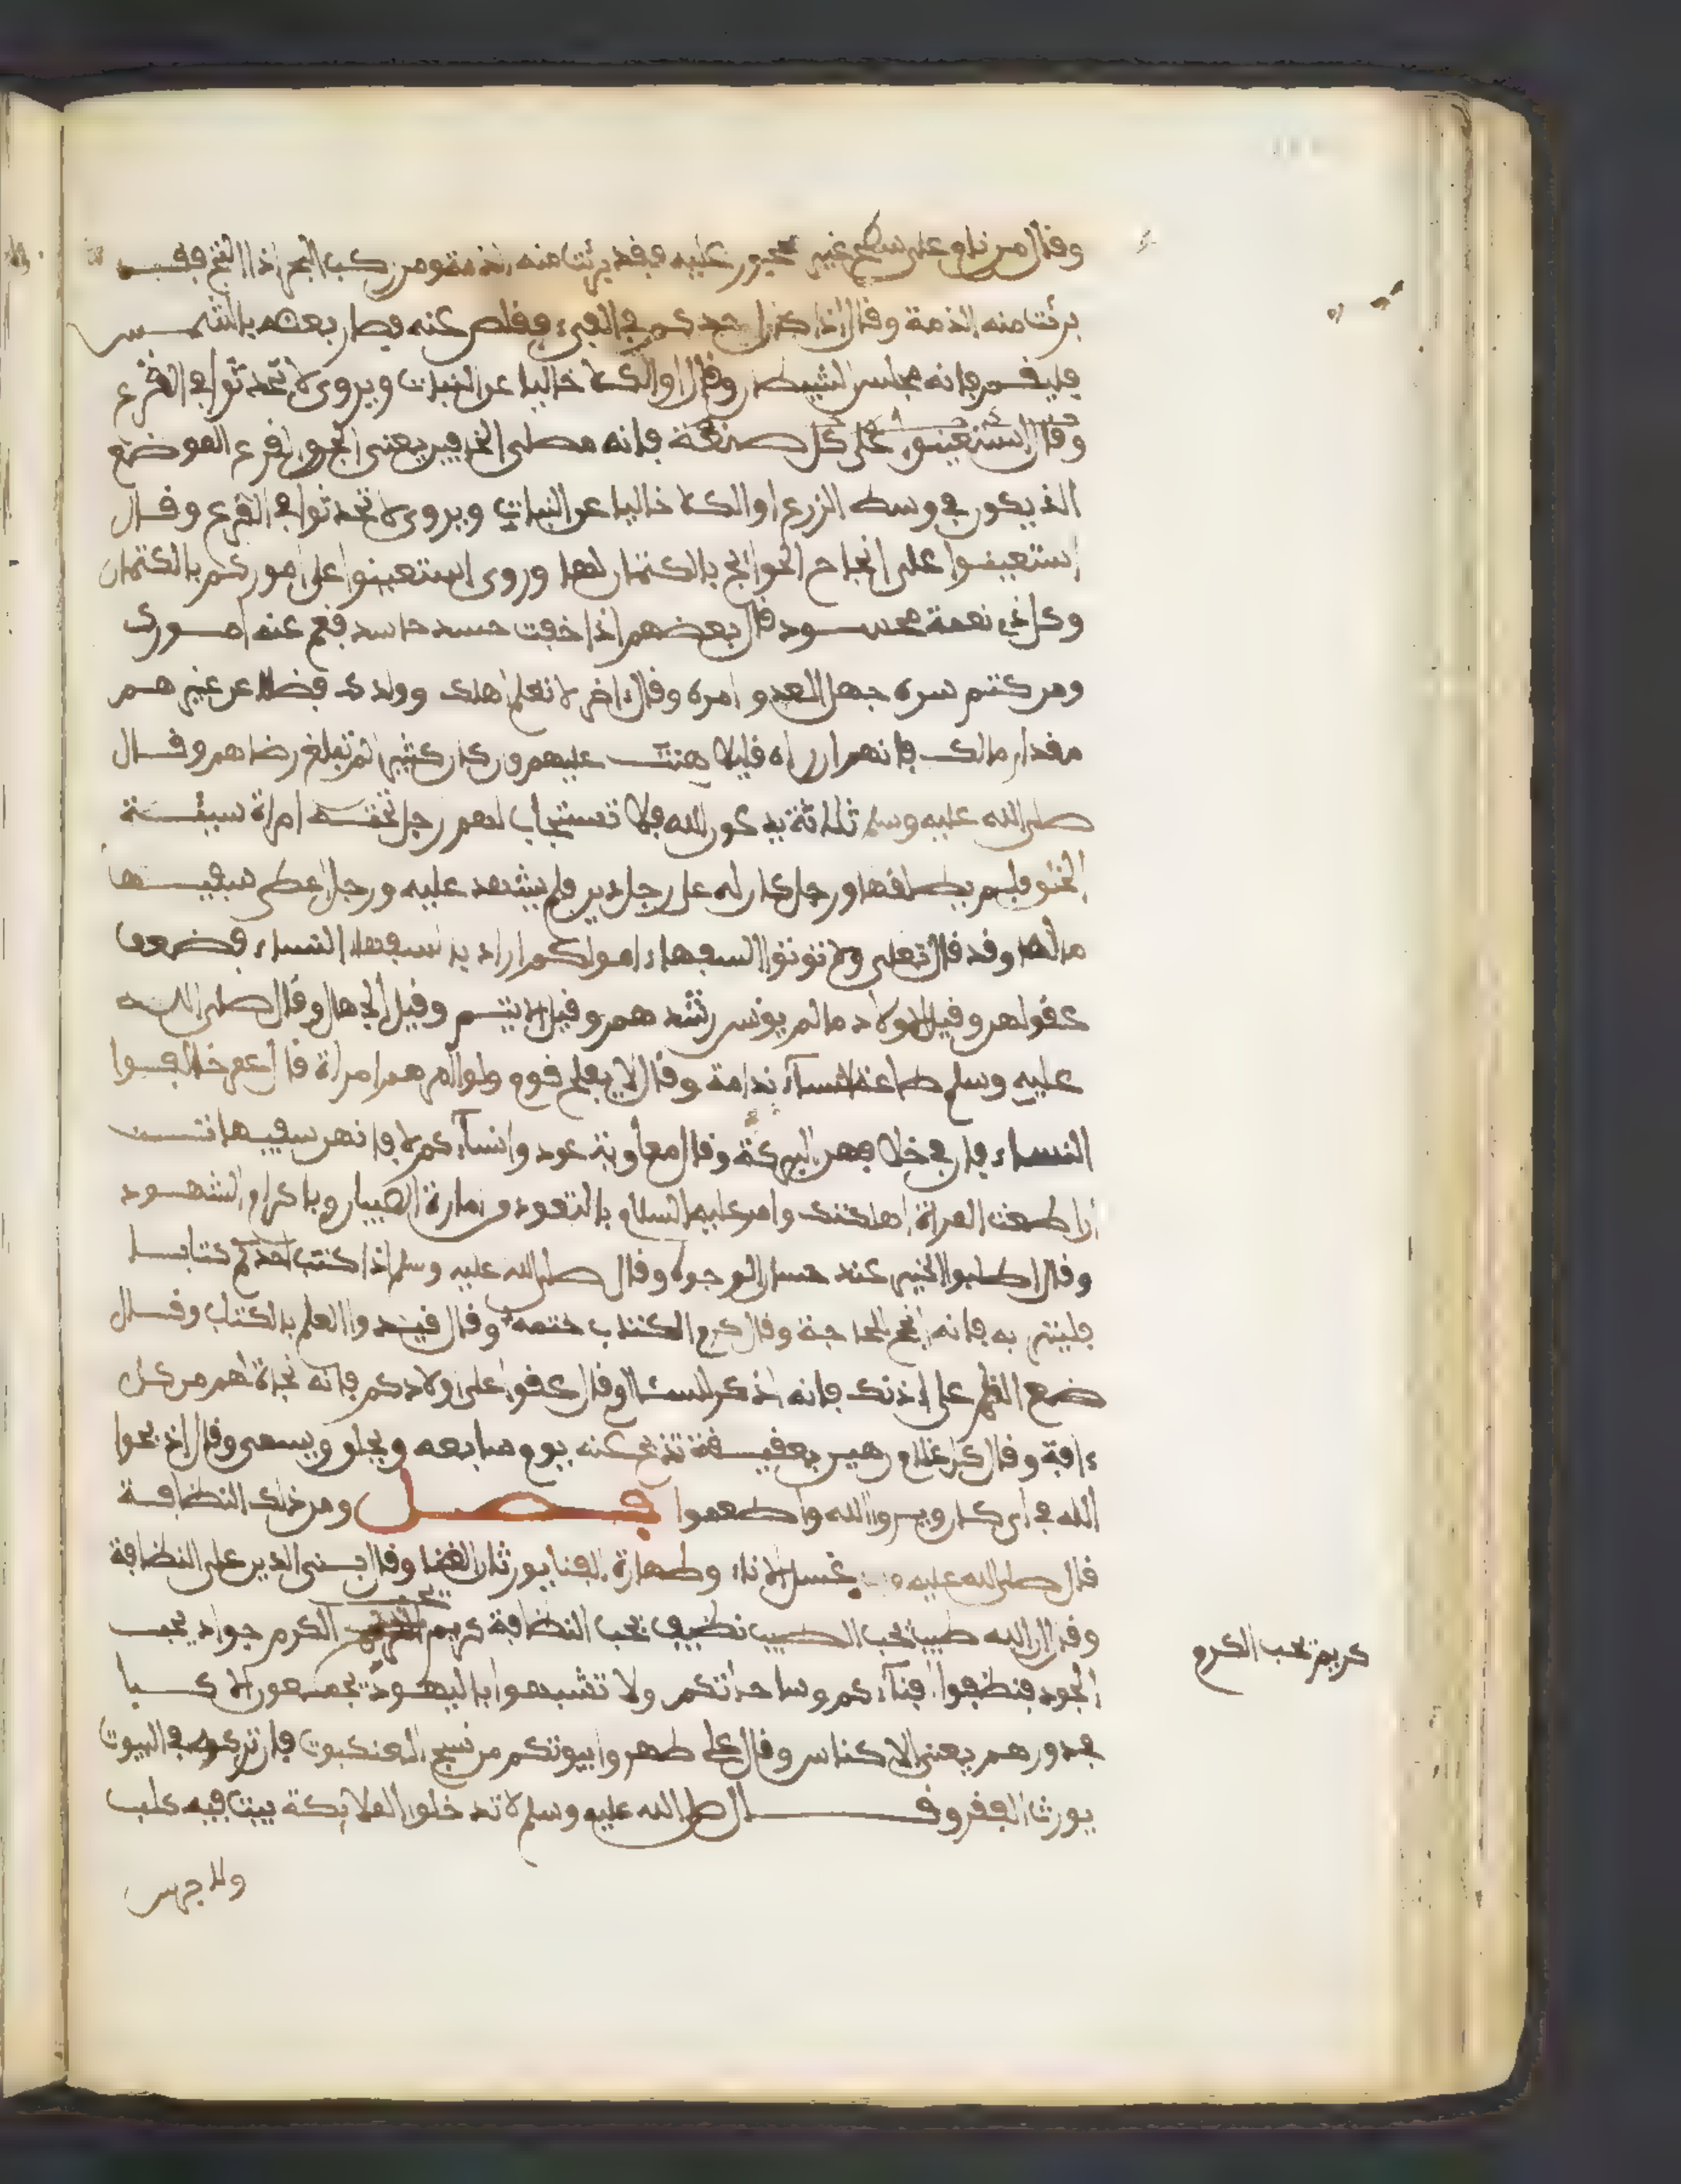 وقال من نام على سطح غير محجور عليه فقد برئت منه الذمة ومن ركب البحر اذا التج فقد
برئت منه الذمة وقال اذا كان احدكم في الفيء فقلص عنه فصار بعضه بالشمس
فليقم فانه مجلس الشيطان وقال او الكلا خاليا عن النبات ويروى لا تحدثوا في القرع
وقال استعينوا على كل صنعة فانه مصلى الخافين يعني الجن والقرع الموضع
الذي يكون في وسط الزرع او الكلا خاليا عن النبات ويروى لا تحدثوا في القرع وقال
استعينوا على انجاح الحوائج بالكتمان لها وروى استعينوا على اموركم بالكتمان
وكل ذي نعمة محسود قال بعضهم اذا خفت حسد حاسد فعم عنه امورك
ومن كتم سره جهل العدو امره وقال اخر لا تعلم اهلك وولدك فضلا عن غيرهم
مقدار مالك فانهم ان راه قليلا هنت عليهم وان كان كثيرا لم تبلغ رضاهم وقال
صلى الله عليه وسلم ثلاثة يدعون الله فلا تستجاب لهم رجل تحته امراة سيئة
الخلق فلم يطلقها ورجل كان له على رجل دين فلم يشهد عليه ورجل اعطى سفيها
مالها وقد قال تعلى ولا توتوا السفهاء اموالكم اراد بالسفهاء النساء لضعف
عقولهن وقيل الاولاد ما لم يونس رشدهم وقيل اليتيم وقيل الجهال وقال صلى الله
عليه وسلم طاعة النساء ندامة وقال لا يفلح قوم ولوا امرهم امراة قال عمر خالفوا
النساء فان في خلافهن البركة وقال معاوية عودوا نساءكم لا فانهن سفيهات
ان اطعت المراة اهلكتك وامر عليه السلام بالتعوذ من امارة الصبيان وباكرام الشهود
وقال اطلبوا الخير عند حسان الوجوه وقال صلى الله عليه وسلم اذا كتب احدكم كتابا
فليترب به فانه انجح للحاجة وقال كرم الكتاب ختمه وقال قيدوا العلم بالكتاب وقال
ضع القلم على اذنك فانه اذكر لك وقال عقوا على اولادكم فانه نجاة لهم من كل
ءافة وقال كل غلام رهين بعقيقة تذبح عنه يوم سابعه ويحلق ويسمى وقال اذبحوا
لله في اي كان وبروا الله واطعموا فصل ومن ذلك النظافة
قال صلى الله عليه وسلم غسل الاناء وطهارة الفناء يورثان الغنا وقال بني الدين على النظافة
وقال ان الله طيب يحب الطيب نظيف يحب النظافة كريم يحب الكرم جواد يحب
الجود فنظفوا افناءكم وساحاتكم ولا تشبهوا باليهود يجمعون الاكبا
في دورهم يعني الاكناس وقال على طهروا بيوتكم من نسج العنكبوت فان تركه في البيوت
يورث الفقر وقال صلى الله عليه وسلم لا تدخل الملايكة بيتا فيه كلب
ولا جرس
كريم يحب الكرم